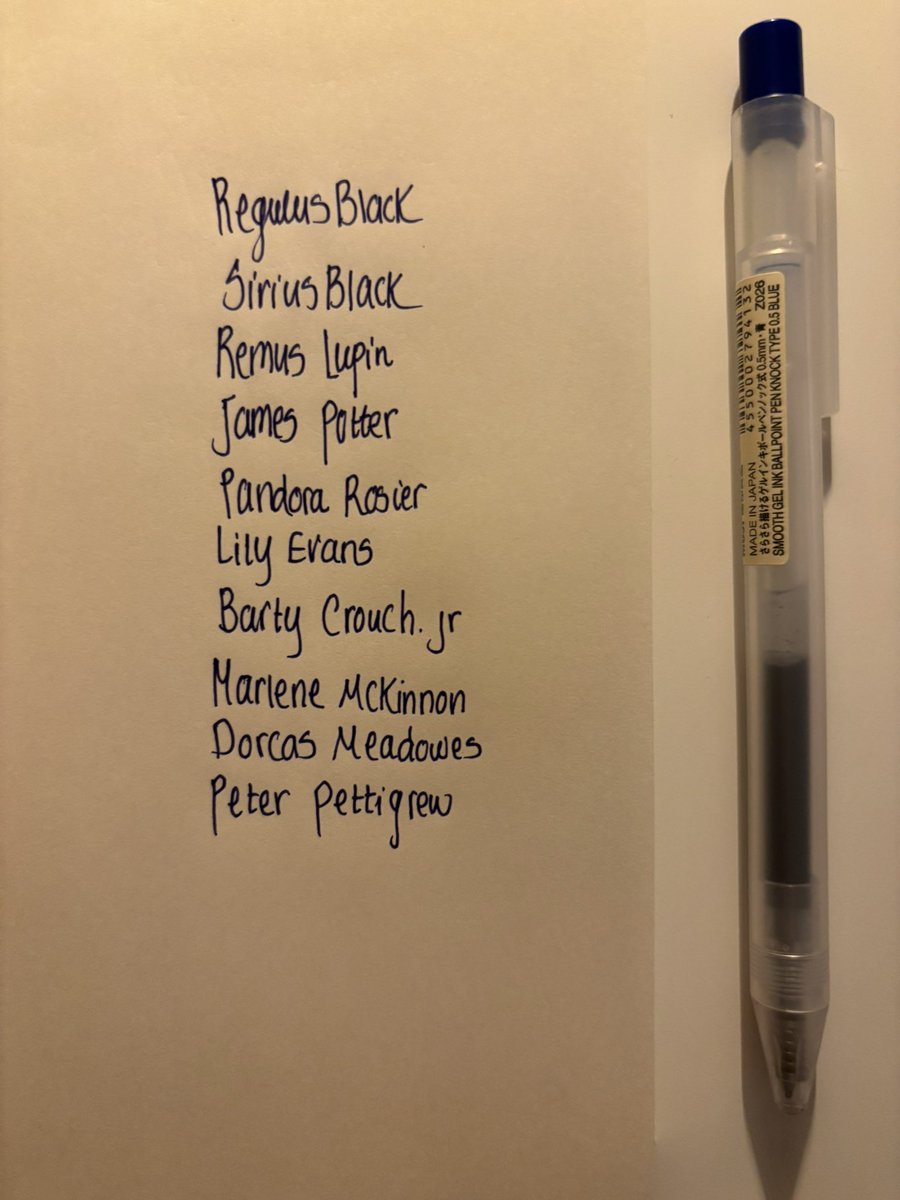 Regulus Black
Sirius Black
Remus Lupin
James Potter
Pandora Rosier
Lily Evans
Barty Crouch. jr
Marlene McKinnon
Dorcas Meadowes
Peter Pettigrew
MADE IN JAPAN 4550002794132
さらさら描けるゲルインキボールペンノック式 0.5mm・青 Z026
SMOOTH GEL INK BALLPOINT PEN KNOCK TYPE 0.5 BLUE